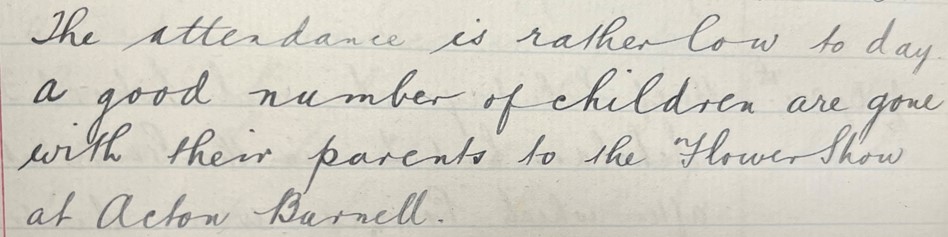 The attendance is rather low to day.
a good number of children are gone
with their parents to the Flower Show
at Acton Burnell.